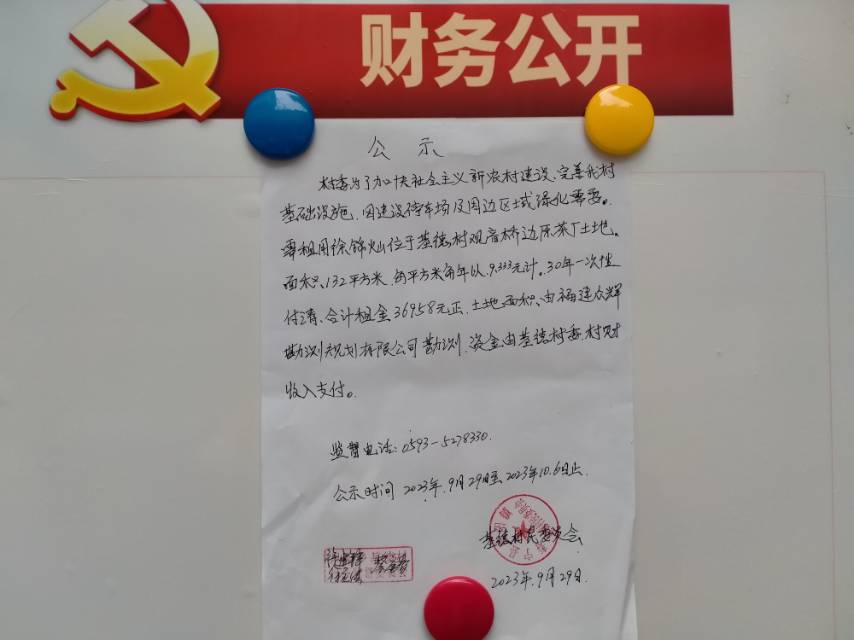 财务公开
公示
村委为了加快社会主义新农村建设、完善我村
基础设施、因建设停车场及周边区域绿化需要。
需租用徐锦灿位于基德村观音桥边原茶厂土地。
面积、132平方米、每平方米每年以、9.333元计。30年一次性
付清、合计租金36958元正、土地面积、由福建众辉
勘测规划有限公司勘测、资金由基德村委、村财
收入支付。
监督电话:0593-5278330.
公示时间 2023年.9月29日至2023年10.6日止.
基德村民委员会
2023年.9月29日.